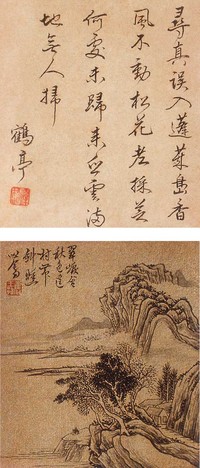 尋真誤入蓬萊島香
風不動松花老採芝
何處未歸來白雲滿
地無人掃
鶴亭
翠微含
秋色遠
村帶